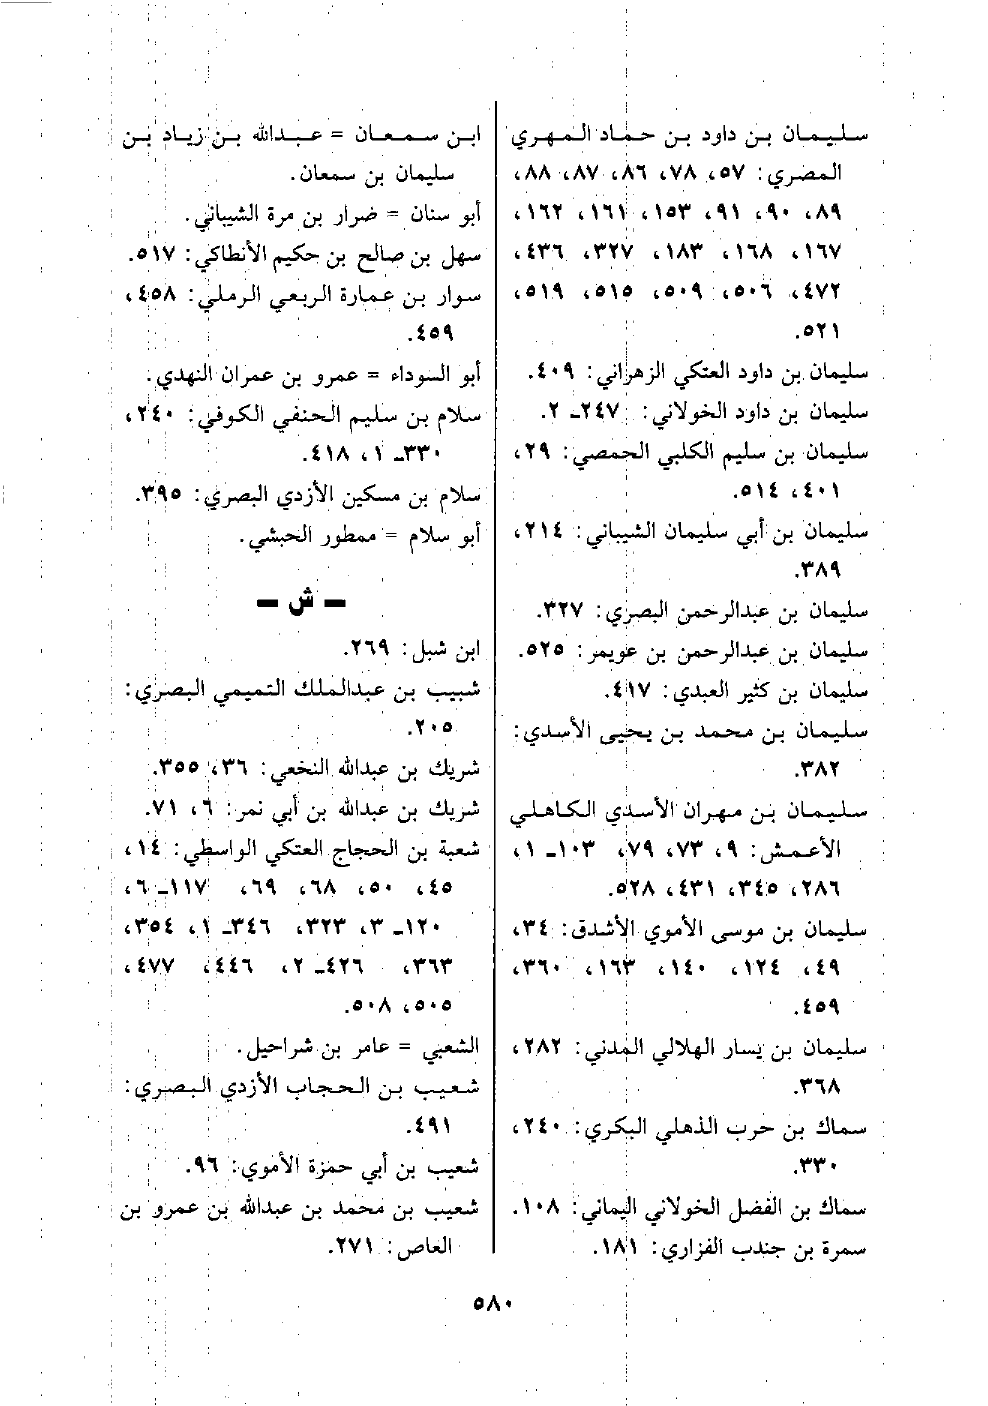 سليمان بن داود بن حماد المهري
المصري: ٥٧، ٧٨، ٨٦، ٨٧، ٨٨،
٨٩، ٩٠، ٩١، ١٥٣، ١٦١، ١٦٢،
١٦٧، ١٦٨، ١٨٣، ٣٢٧، ٤٣٦،
٤٧٢، ٥٠٦، ٥٠٩، ٥١٥، ٥١٩،
٥٢١.
سليمان بن داود العتكي الزهراني: ٤٠٩.
سليمان بن داود الخولاني: ٢٤٧ـ ٢.
سليمان بن سليم الكلبي الحمصي: ٢٩،
٤٠١، ٥١٤.
سليمان بن أبي سليمان الشيباني: ٢١٤،
٣٨٩.
سليمان بن عبدالرحمن البصري: ٣٢٧.
سليمان بن عبدالرحمن بن عويمر: ٥٢٥.
سليمان بن كثير العبدي: ٤١٧.
سليمان بن محمد بن يحيى الأسدي:
٣٨٢.
سليمان بن مهران الأسدي الكاهلي
الأعمش: ٩، ٧٣، ٧٩، ١٠٣ـ ١،
٢٨٦، ٣٤٥، ٤٣١، ٥٢٨.
سليمان بن موسى الأموي الأشدق: ٣٤،
٤٩، ١٢٤، ١٤٠، ١٦٣، ٣٦٠،
٤٥٩.
سليمان بن يسار الهلالي المدني: ٢٨٢،
٣٦٨.
سماك بن حرب الذهلي البكري: ٢٤٠،
٣٣٠.
سماك بن الفضل الخولاني اليماني: ١٠٨.
سمرة بن جندب الفزاري: ١٨١.
ابن سمعان = عبدالله بن زياد بن
سليمان بن سمعان.
أبو سنان = ضرار بن مرة الشيباني.
سهل بن صالح بن حكيم الأنطاكي: ٥١٧.
سوار بن عمارة الربعي الرملي: ٤٥٨،
٤٥٩.
أبو السوداء = عمرو بن عمران النهدي.
سلام بن سليم الحنفي الكوفي: ٢٤٠،
٣٣٠ـ ١، ٤١٨.
سلام بن مسكين الأزدي البصري: ٣٩٥.
أبو سلام = ممطور الحبشي.
ـ ش ـ
ابن شبل: ٢٦٩.
شبيب بن عبدالملك التميمي البصري:
٢٠٥.
شريك بن عبدالله النخعي: ٣٦، ٣٥٥.
شريك بن عبدالله بن أبي نمر: ٦، ٧١.
شعبة بن الحجاج العتكي الواسطي: ١٤،
٤٥، ٥٠، ٦٨، ٦٩، ١١٧ـ ٦،
١٢٠ـ ٣، ٣٢٣، ٣٤٦ـ ١، ٣٥٤،
٣٦٣، ٤٢٦ـ ٢، ٤٤٦، ٤٧٧،
٥٠٥، ٥٠٨.
الشعبي = عامر بن شراحيل.
شعيب بن الحجاب الأزدي البصري:
٤٩١.
شعيب بن أبي حمزة الأموي: ٩٦.
شعيب بن محمد بن عبدالله بن عمرو بن
العاص: ٢٧١.
٥٨٠